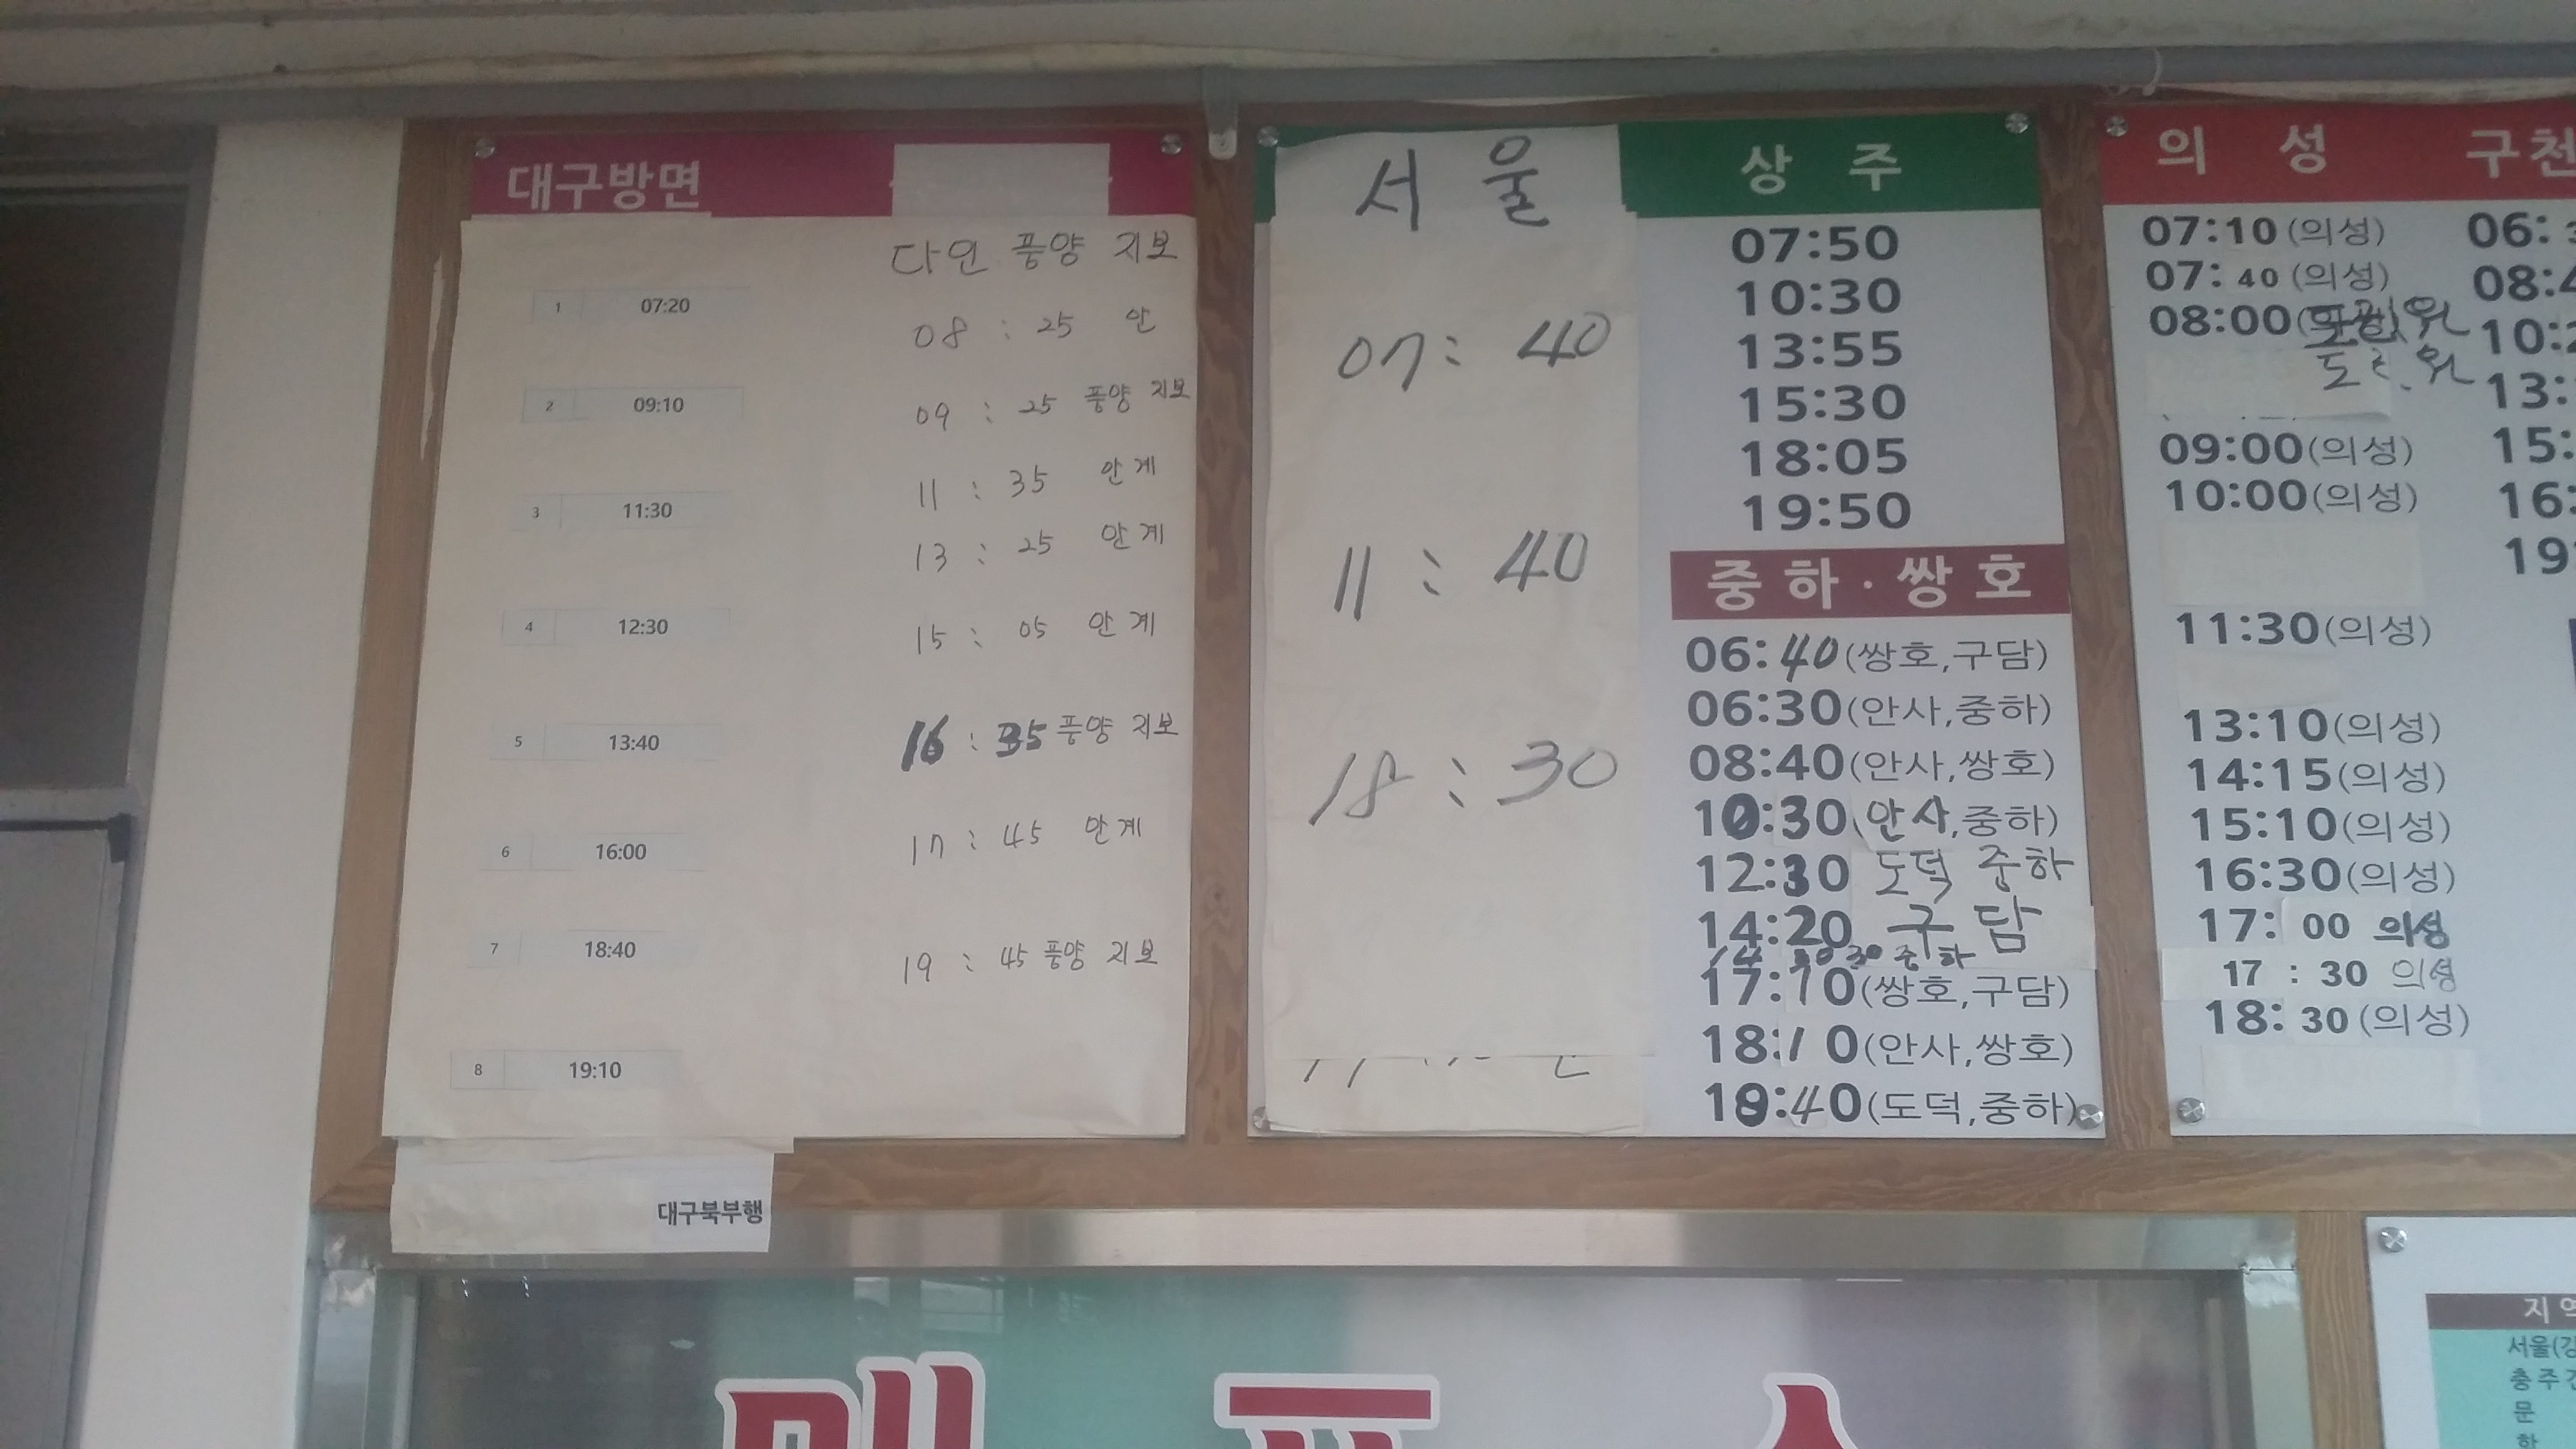 대구방면
1 07:20
2 09:10
3 11:30
4 12:30
5 13:40
6 16:00
7 18:40
8 19:10
대구북부행
다인 풍양 지보
08 : 25 안
09 : 25 풍양 지보
11 : 35 안계
13 : 25 안계
15 : 05 안계
16 : 35 풍양 지보
17 : 45 안계
19 : 45 풍양 지보
서울
07 : 40
11 : 40
18 : 30
상주
07:50
10:30
13:55
15:30
18:05
19:50
중하·쌍호
06:40(쌍호,구담)
06:30(안사,중하)
08:40(안사,쌍호)
10:30(안사,중하)
12:30 도덕 중하
14:20 구담
30 중하
17:10(쌍호,구담)
18:10(안사,쌍호)
19:40(도덕,중하)
의성
07:10(의성)
07:40(의성)
08:00
09:00(의성)
10:00(의성)
11:30(의성)
13:10(의성)
14:15(의성)
15:10(의성)
16:30(의성)
17:00 의성
17 : 30 의성
18:30(의성)
구천
06:
08:
10:
13:
15:
16:
19
매표소
지역
서울(강
충주
문